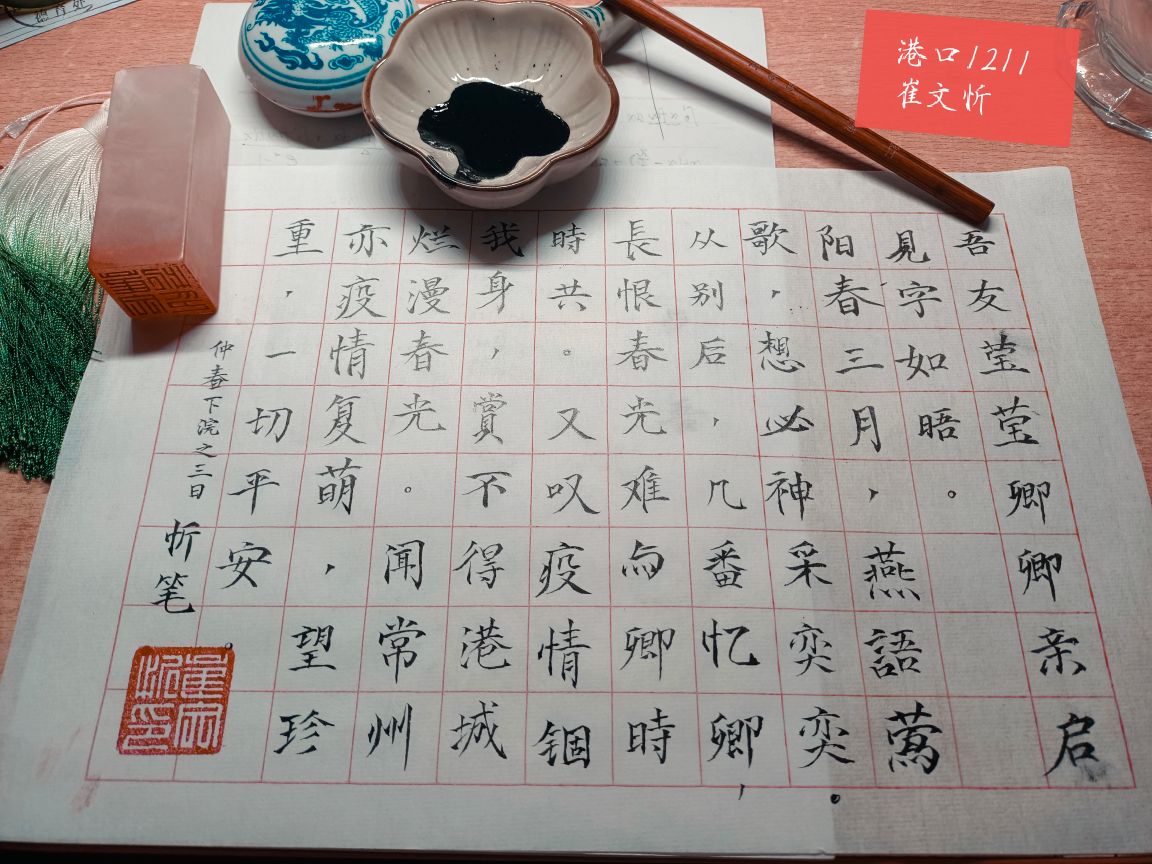 德育处
港口1211
崔文忻
吾友莹莹卿卿亲启
見字如晤。
阳春三月，燕語莺
歌，想必神采奕奕。
从别后，几番忆卿，
長恨春光难与卿時
時共。又叹疫情锢
我身，賞不得港城
烂漫春光。闻常州
亦疫情复萌，望珍
重，一切平安。
仲春下浣之三日
忻笔
崔文忻印